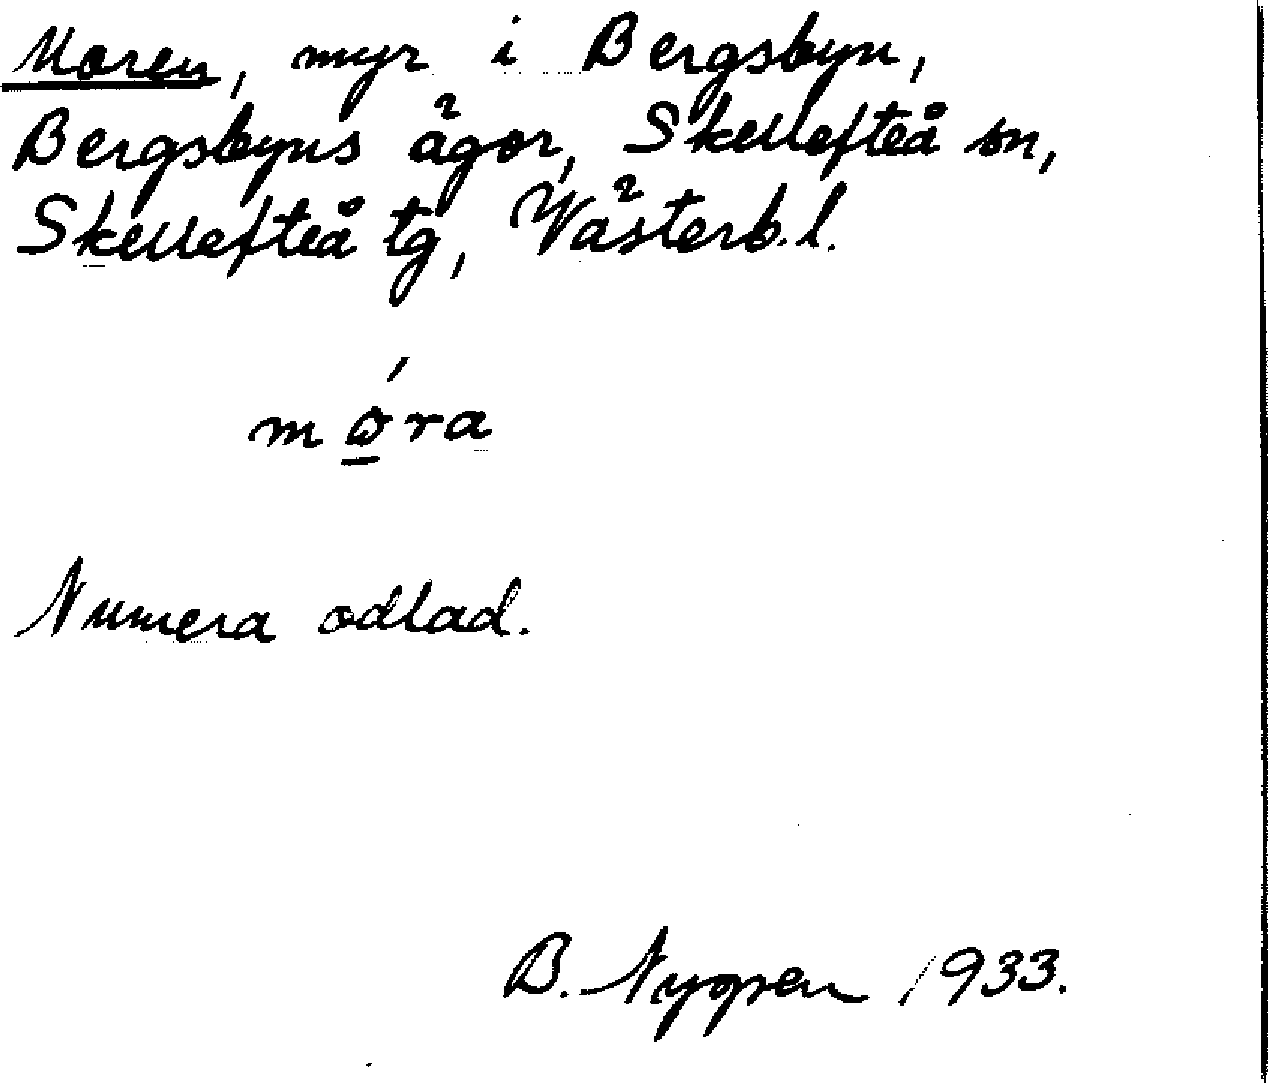 Moren, myr i Bergsbyn,
Bergsbyns ägor, Skellefteå sn,
Skellefteå tg, Västerb. l.
mo̲ra
Numera odlad.
B. Nygren 1933.